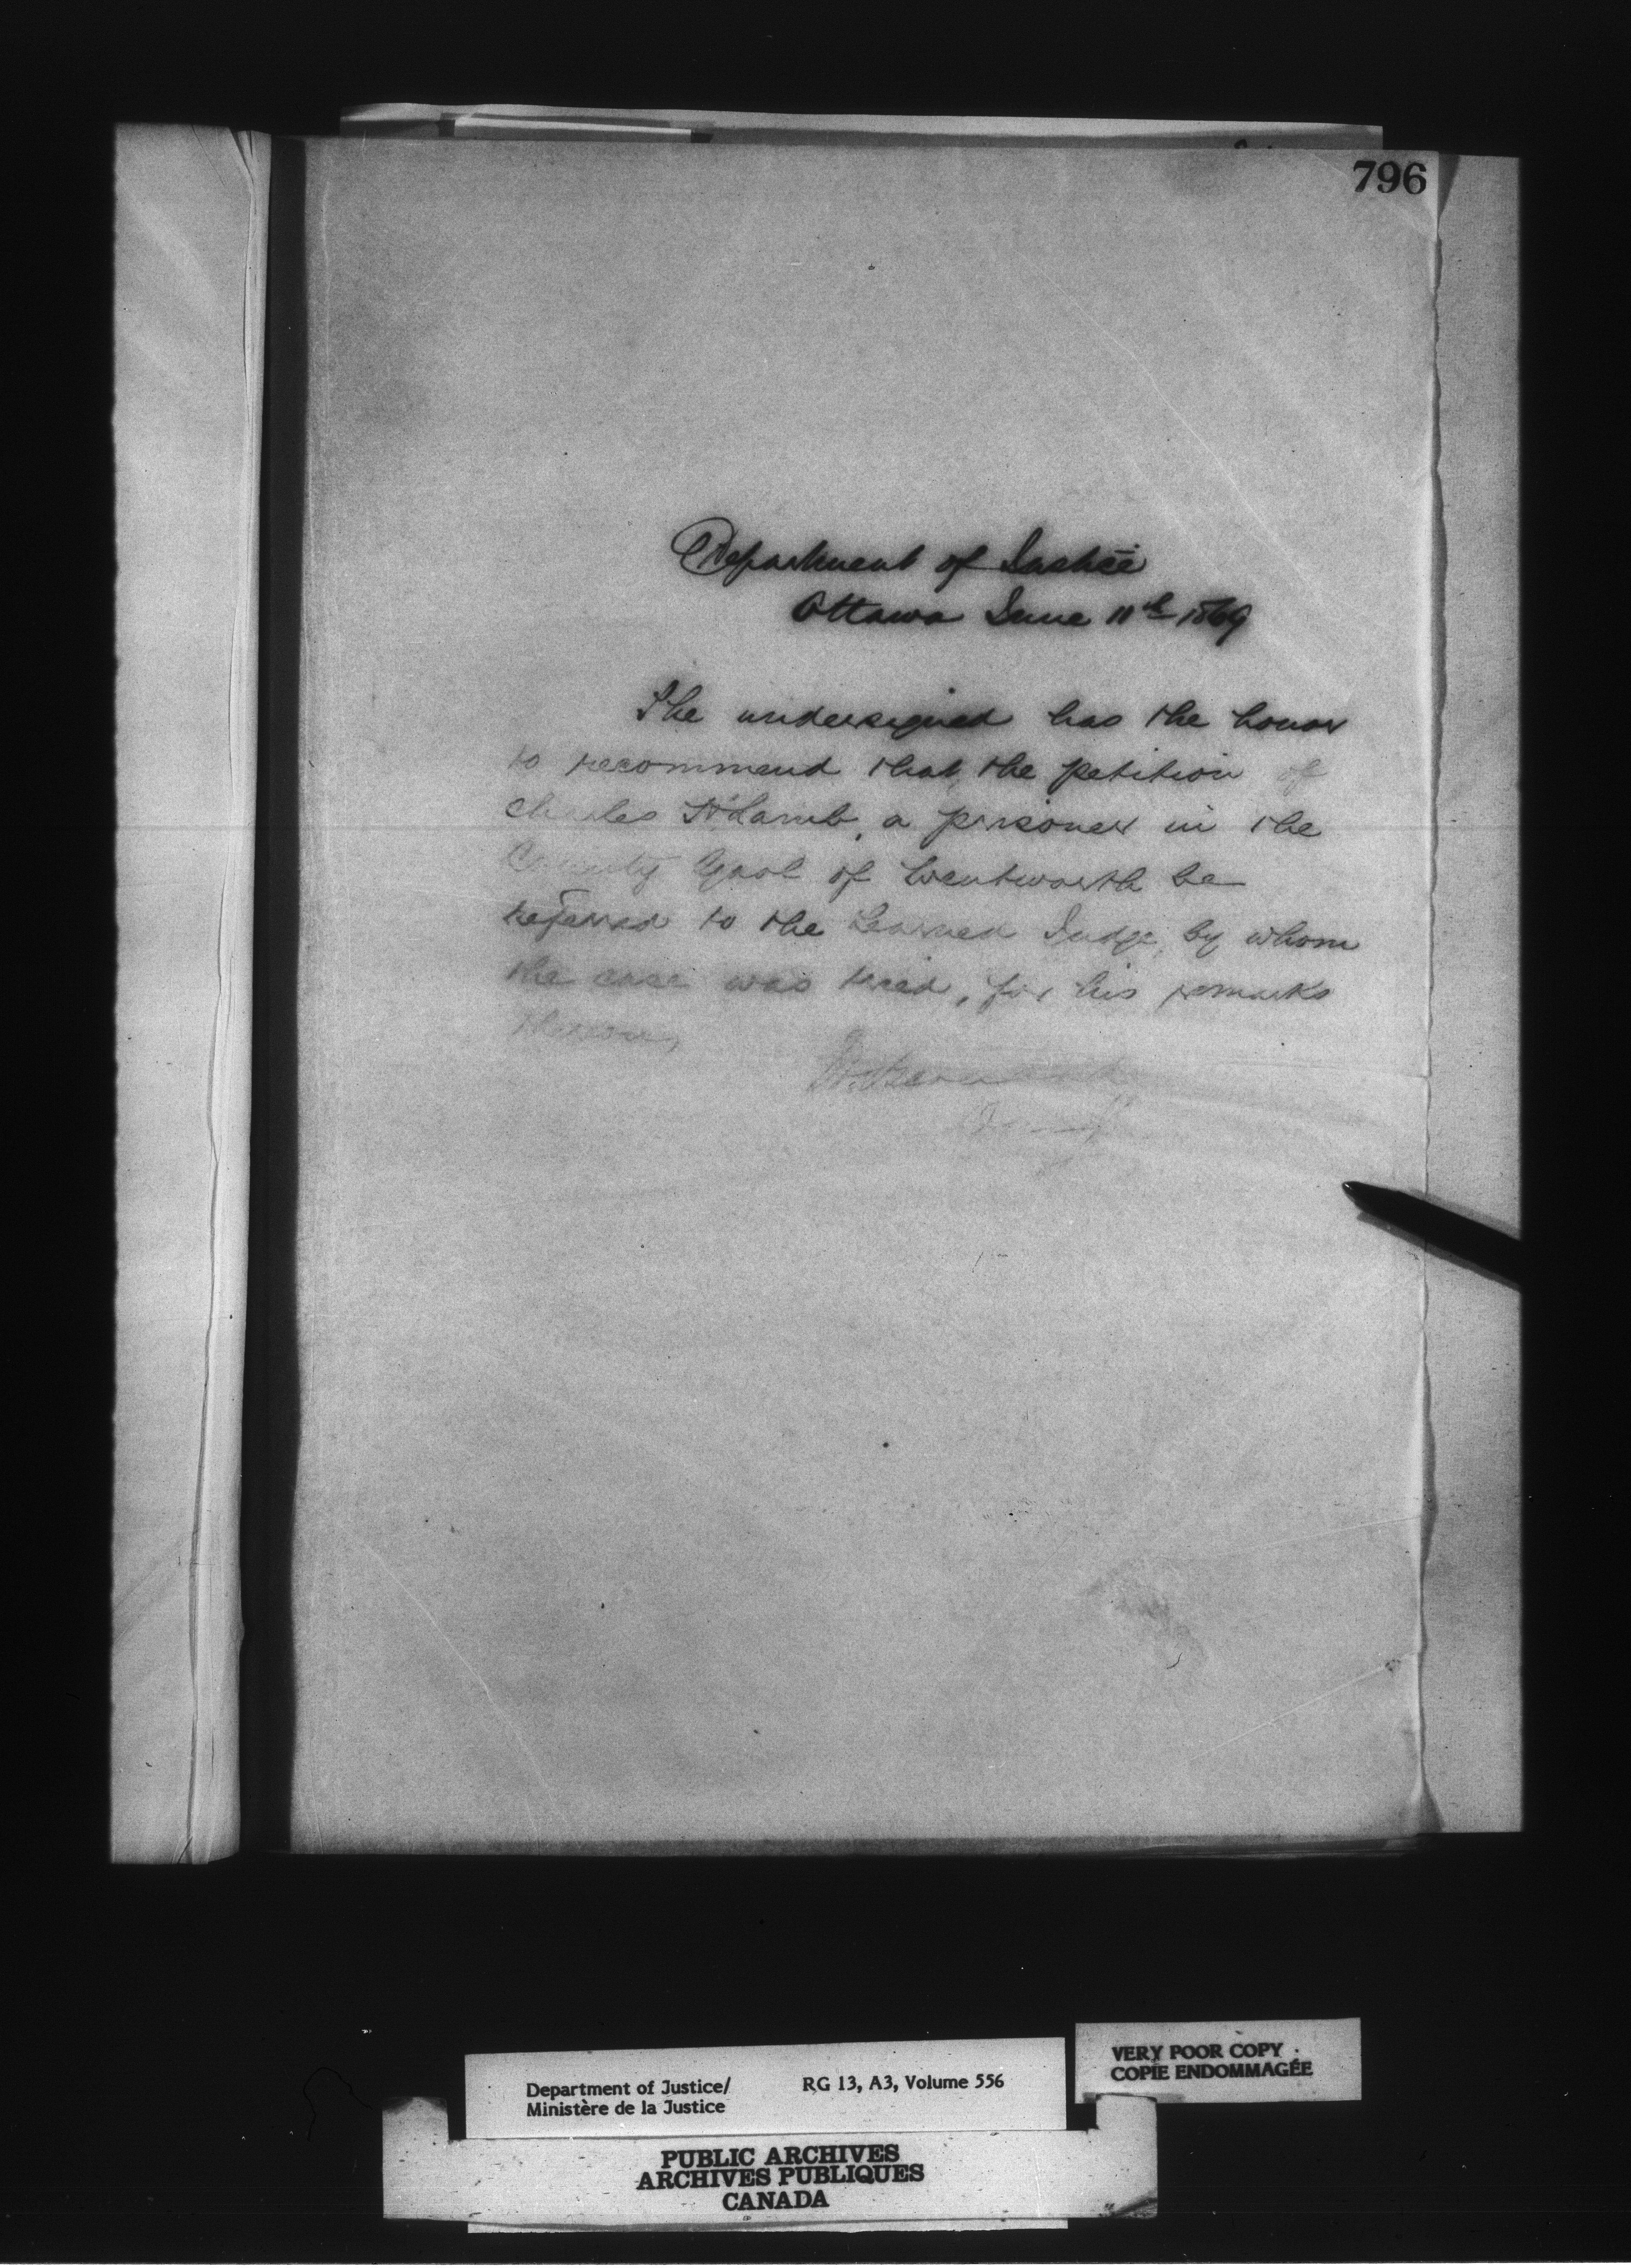 796
Department of Justice
Ottawa June 11th 1869
The undersigned has the honor
to recommend that, the petition of
Charles Lamb, a prisoner in the
County Gaol of Wentworth be
referred to the Learned Judge, by whom
the case was tried, for his remarks
thereon,
Department of Justice/
Ministère de la Justice
RG 13, A3, Volume 556
VERY POOR COPY
COPIE ENDOMMAGÉE
PUBLIC ARCHIVES
ARCHIVES PUBLIQUES
CANADA